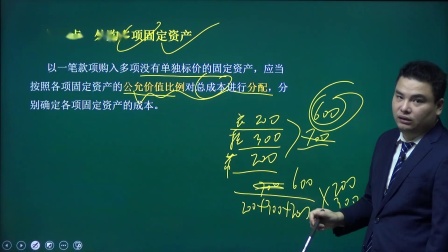 项固定资产
以一笔款项购入多项没有单独标价的固定资产，应当
按照各项固定资产的公允价值比例对总成本进行分配，分
别确定各项固定资产的成本。
600
200
300
200
600
200+300+200
200
300